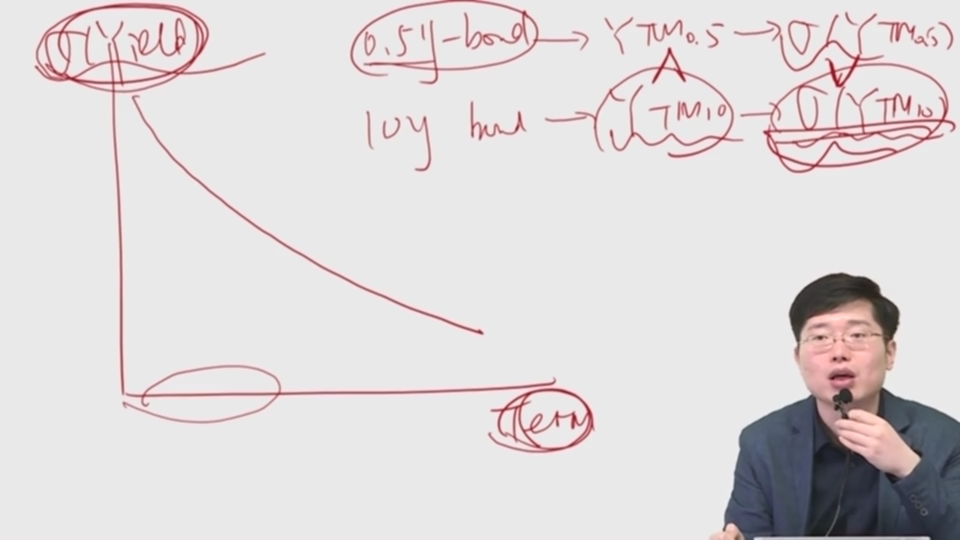 σ(Yield)
0.5y-bond → YTM0.5 → σ(YTM0.5)
∧ ∨
10y bond → YTM10 → σ(YTM10)
Term